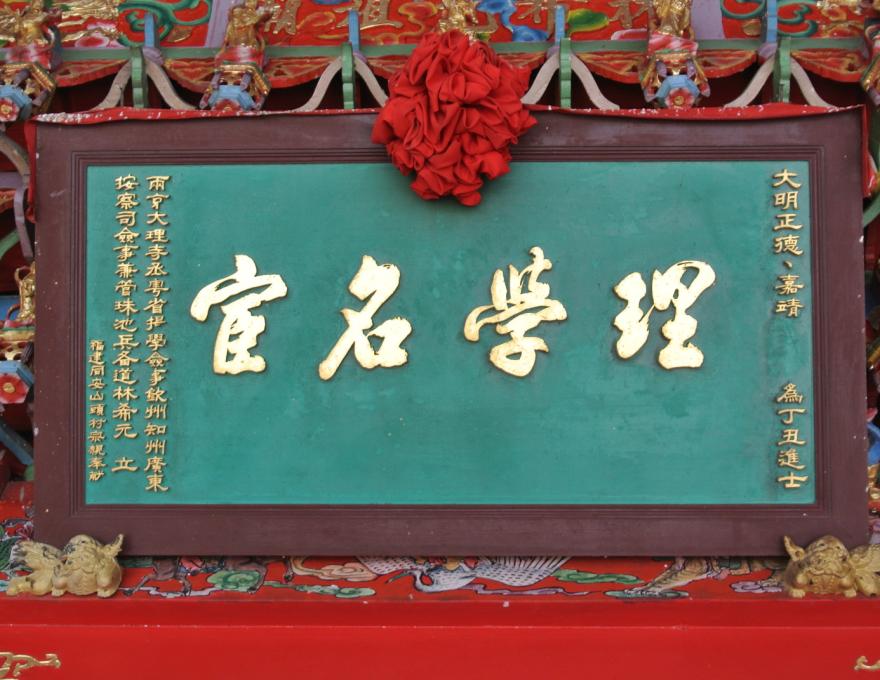 大明正德、嘉靖 為丁丑進士
理學名宦
兩京大理寺丞粵省提學僉事欽州知州廣東
按察司僉事兼管珠池兵备道林希元 立
福建同安山頭村宗親奉献